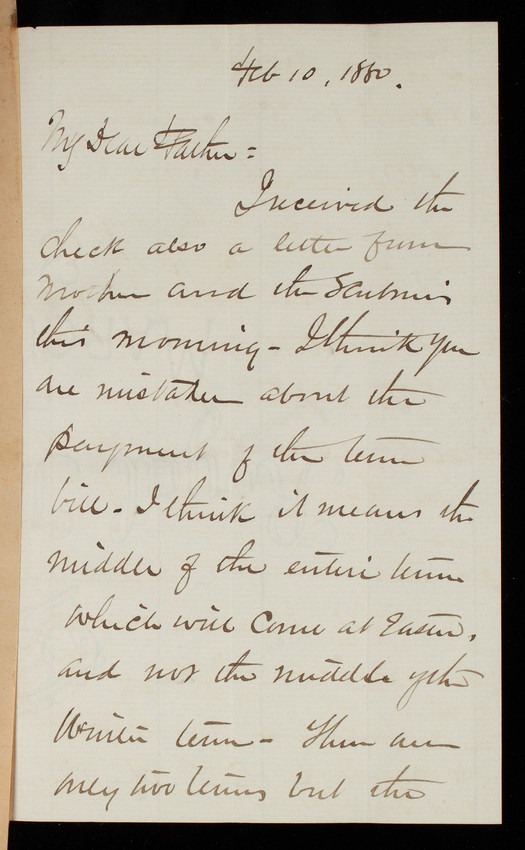 Feb 10, 1880.
My Dear Father =
I received the
check also a letter from
Mother and the Scribner's
this morning - I think you
are mistaken about the
payment of the term
bill. I think it means the
middle of the entire term
which will come at Easter,
and not the middle of the
Winter term - There are
only two terms but the